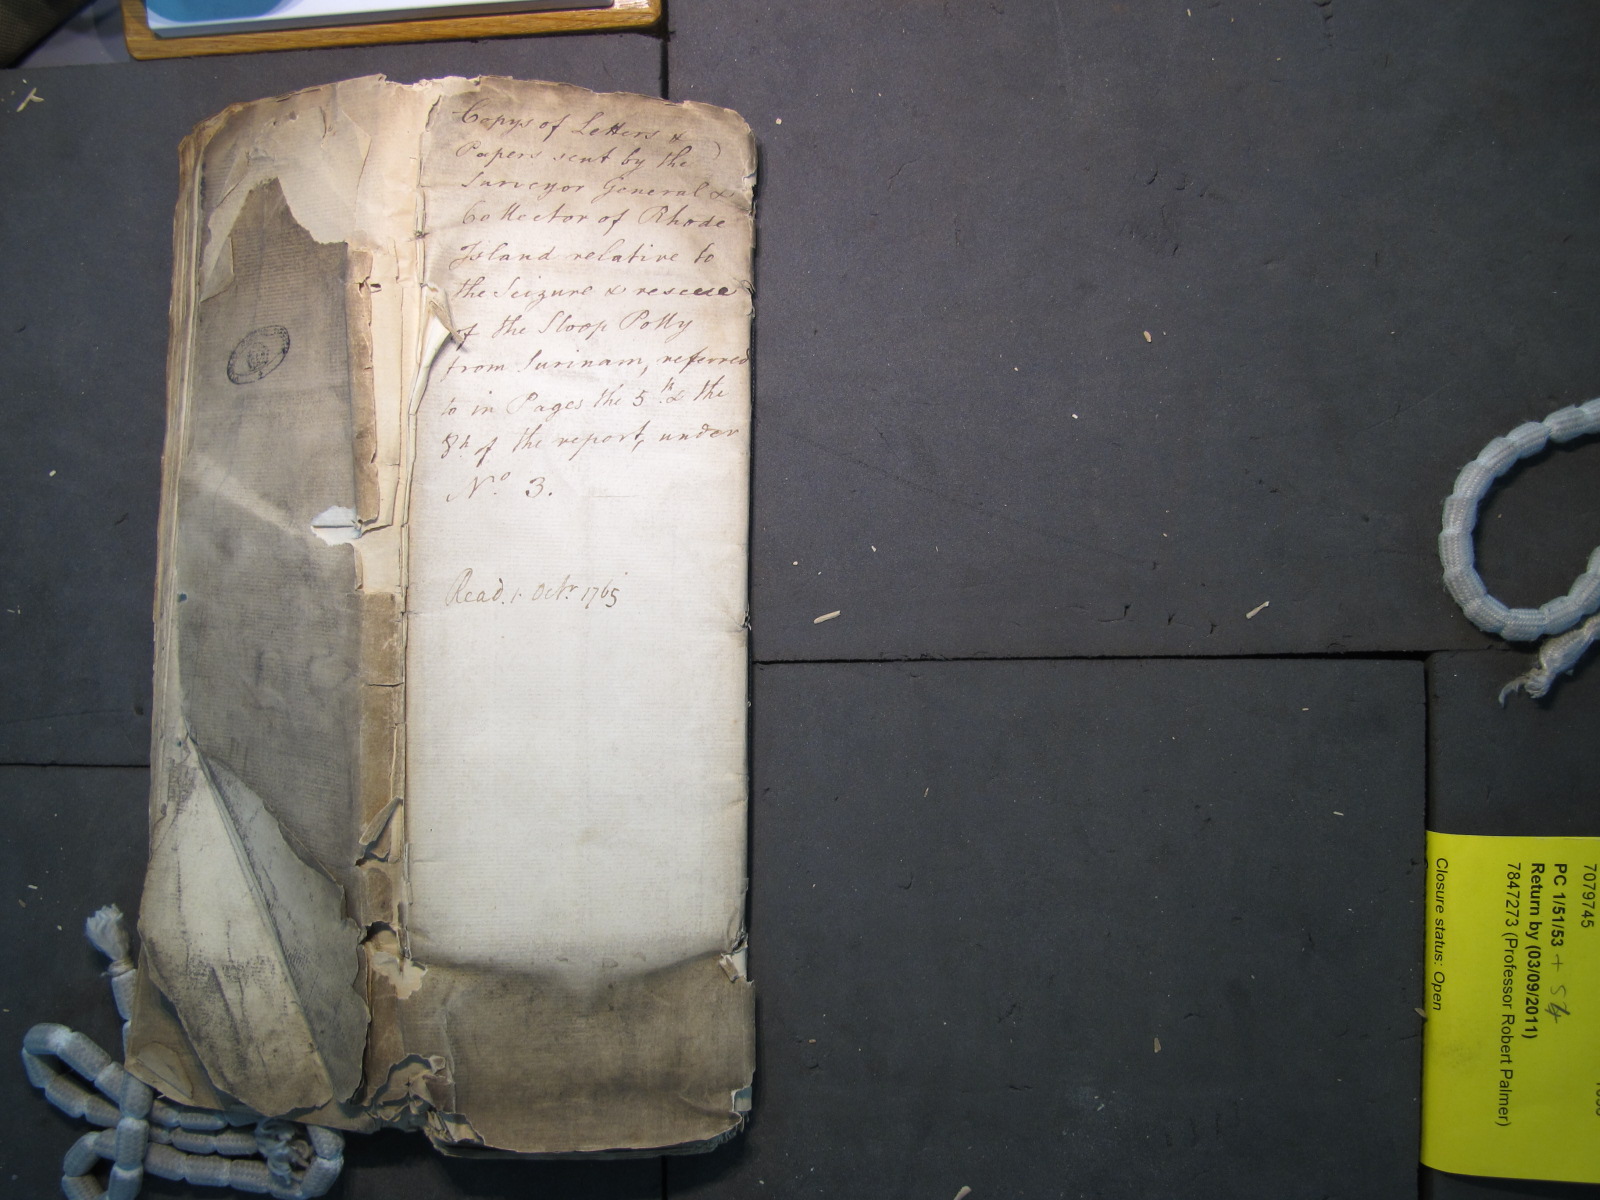 Copys of Letters &
Papers sent by the
Surveyor General &
Collector of Rhode
Island relative to
the Seizure & rescue
of the Sloop Polly
from Surinam, referred
to in Pages the 5th & the
8th of the report, under
No. 3.
Read 1 Octr 1765
7079745
PC 1/51/53 + 54
Return by (03/09/2011)
7847273 (Professor Robert Palmer)
Closure status: Open